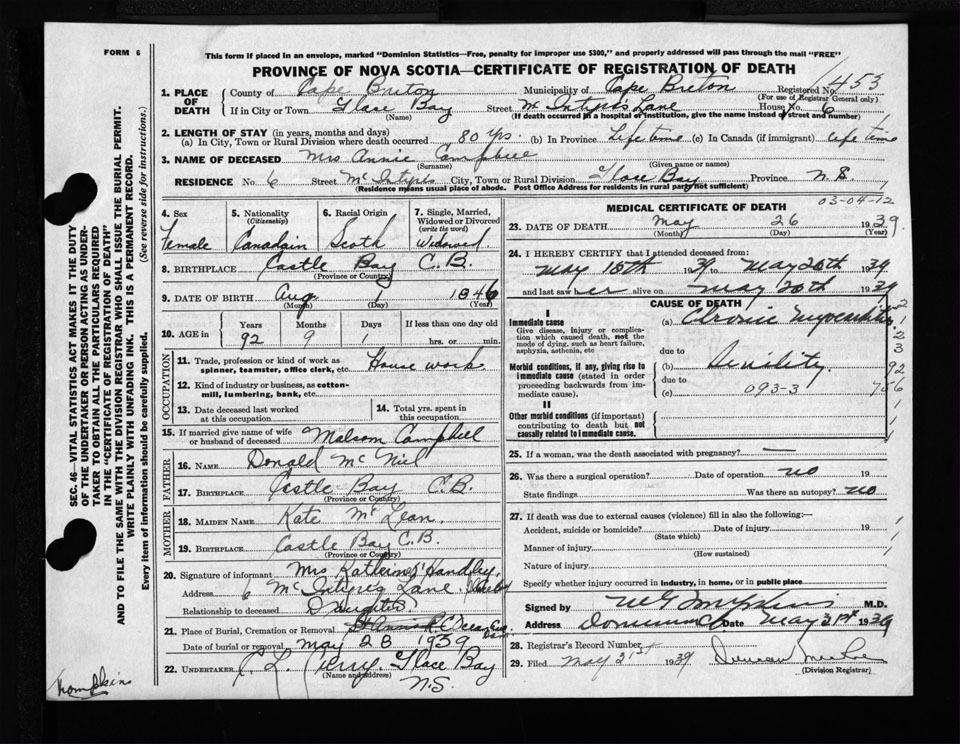 FORM 6
This form if placed in an envelope, marked "Dominion Statistics—Free, penalty for improper use $300," and properly addressed will pass through the mail "FREE"
PROVINCE OF NOVA SCOTIA—CERTIFICATE OF REGISTRATION OF DEATH
1. PLACE OF DEATH County of Cape Breton Municipality of Cape Breton Registered No. 453
(For use of Registrar General only)
If in City or Town Glace Bay Street Mc Intyres Lane House No. 6
(Name) (If death occurred in a hospital or institution, give the name instead of street and number)
2. LENGTH OF STAY (in years, months and days)
(a) In City, Town or Rural Division where death occurred 80 yrs. (b) In Province Life time (c) In Canada (if immigrant) life time
3. NAME OF DECEASED Mrs Annie Campbell
(Surname) (Given name or names)
RESIDENCE No. 6 Street McIntyres City, Town or Rural Division Glace Bay Province N.S.
(Residence means usual place of abode. Post Office Address for residents in rural parts not sufficient)
4. Sex Female
5. Nationality (Citizenship) Canadain
6. Racial Origin Scoth
7. Single, Married, Widowed or Divorced (write the word) Widowed
8. BIRTHPLACE Castle Bay C.B.
(Province or Country)
9. DATE OF BIRTH Aug 1 1846
(Month) (Day) (Year)
10. AGE in Years Months Days If less than one day old
92 9 1 hrs. or min.
OCCUPATION
11. Trade, profession or kind of work as spinner, teamster, office clerk, etc. House work
12. Kind of industry or business, as cotton-mill, lumbering, bank, etc.
13. Date deceased last worked at this occupation
14. Total yrs. spent in this occupation
15. If married give name of wife or husband of deceased Malcom Campbell
FATHER
16. NAME Donald Mc Niel
17. BIRTHPLACE Castle Bay C.B.
(Province or Country)
MOTHER
18. MAIDEN NAME Kate McLean.
19. BIRTHPLACE Castle Bay C.B.
(Province or Country)
20. Signature of informant Mrs Handley
Address 6 Lane
Relationship to deceased Daughter
21. Place of Burial, Cremation or Removal
Date of burial or removal May 28 1939
22. UNDERTAKER Glace Bay
(Name and address)
N.S.
03-04-12
MEDICAL CERTIFICATE OF DEATH
23. DATE OF DEATH May 26 1939
(Month) (Day) (Year)
24. I HEREBY CERTIFY that I attended deceased from:
May 15th 1939 to May 26th 1939
and last saw her alive on May 26th 1939
CAUSE OF DEATH
I
Immediate cause
Give disease, injury or complication which caused death, not the mode of dying, such as heart failure, asphyxia, asthenia, etc
(a) Chronic myocarditis
due to
Morbid conditions, if any, giving rise to immediate cause (stated in order proceeding backwards from immediate cause).
(b) Senility.
due to
(c) 093-3
II
Other morbid conditions (if important) contributing to death but not causally related to immediate cause.
25. If a woman, was the death associated with pregnancy? —
26. Was there a surgical operation? Date of operation no 19
State findings Was there an autopsy? no
27. If death was due to external causes (violence) fill in also the following:—
Accident, suicide or homicide? Date of injury 19
(State which)
Manner of injury
(How sustained)
Nature of injury
Specify whether injury occurred in industry, in home, or in public place
Signed by M.D.
Address Dominion Date May 31st 1939
28. Registrar's Record Number
29. Filed May 31st 1939
(Division Registrar)
SEC. 46—VITAL STATISTICS ACT MAKES IT THE DUTY OF THE UNDERTAKER OR PERSON ACTING AS UNDERTAKER TO OBTAIN ALL THE PARTICULARS REQUIRED IN THE "CERTIFICATE OF REGISTRATION OF DEATH"
AND TO FILE THE SAME WITH THE DIVISION REGISTRAR WHO SHALL ISSUE THE BURIAL PERMIT.
WRITE PLAINLY WITH UNFADING INK. THIS IS A PERMANENT RECORD.
Every item of information should be carefully supplied. (See reverse side for instructions.)